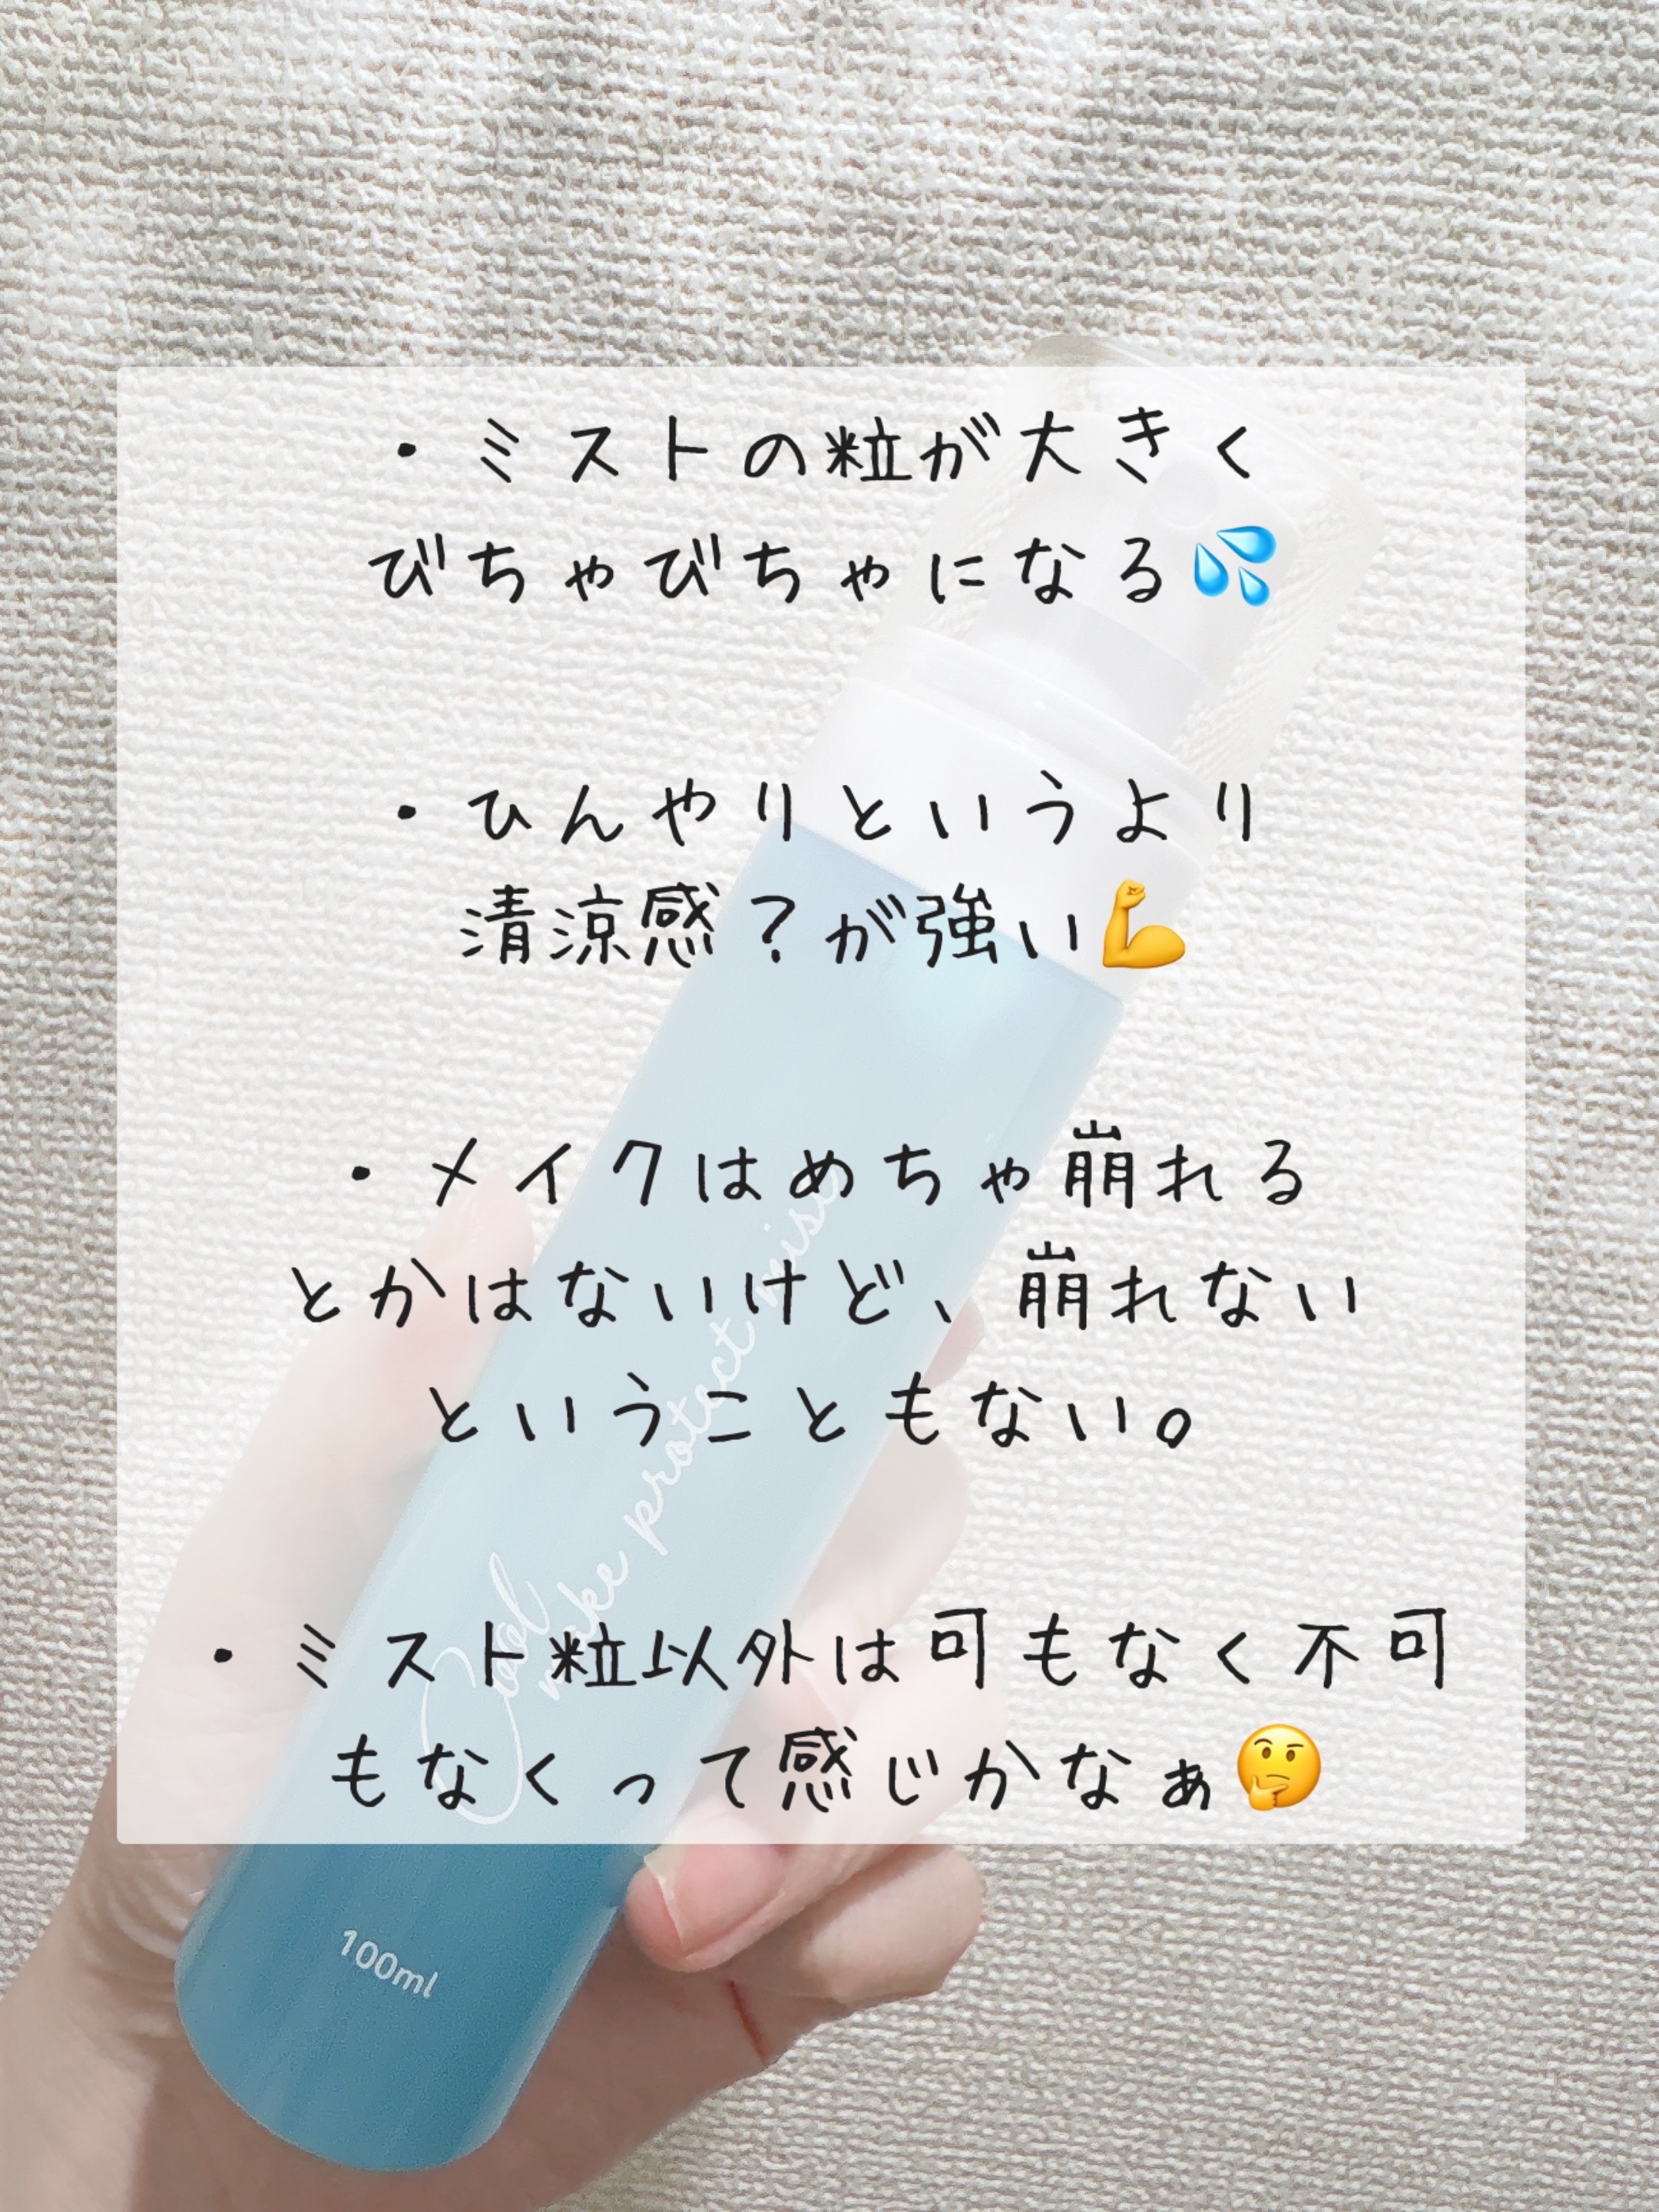 ・ミストの粒が大きく
びちゃびちゃになる💦
・ひんやりというより
清涼感？が強い💪
・メイクはめちゃ崩れる
とかはないけど、崩れない
ということもない。
・ミスト粒以外は可もなく不可
もなくって感じかなぁ🤔
Cool
make protect mist
100ml